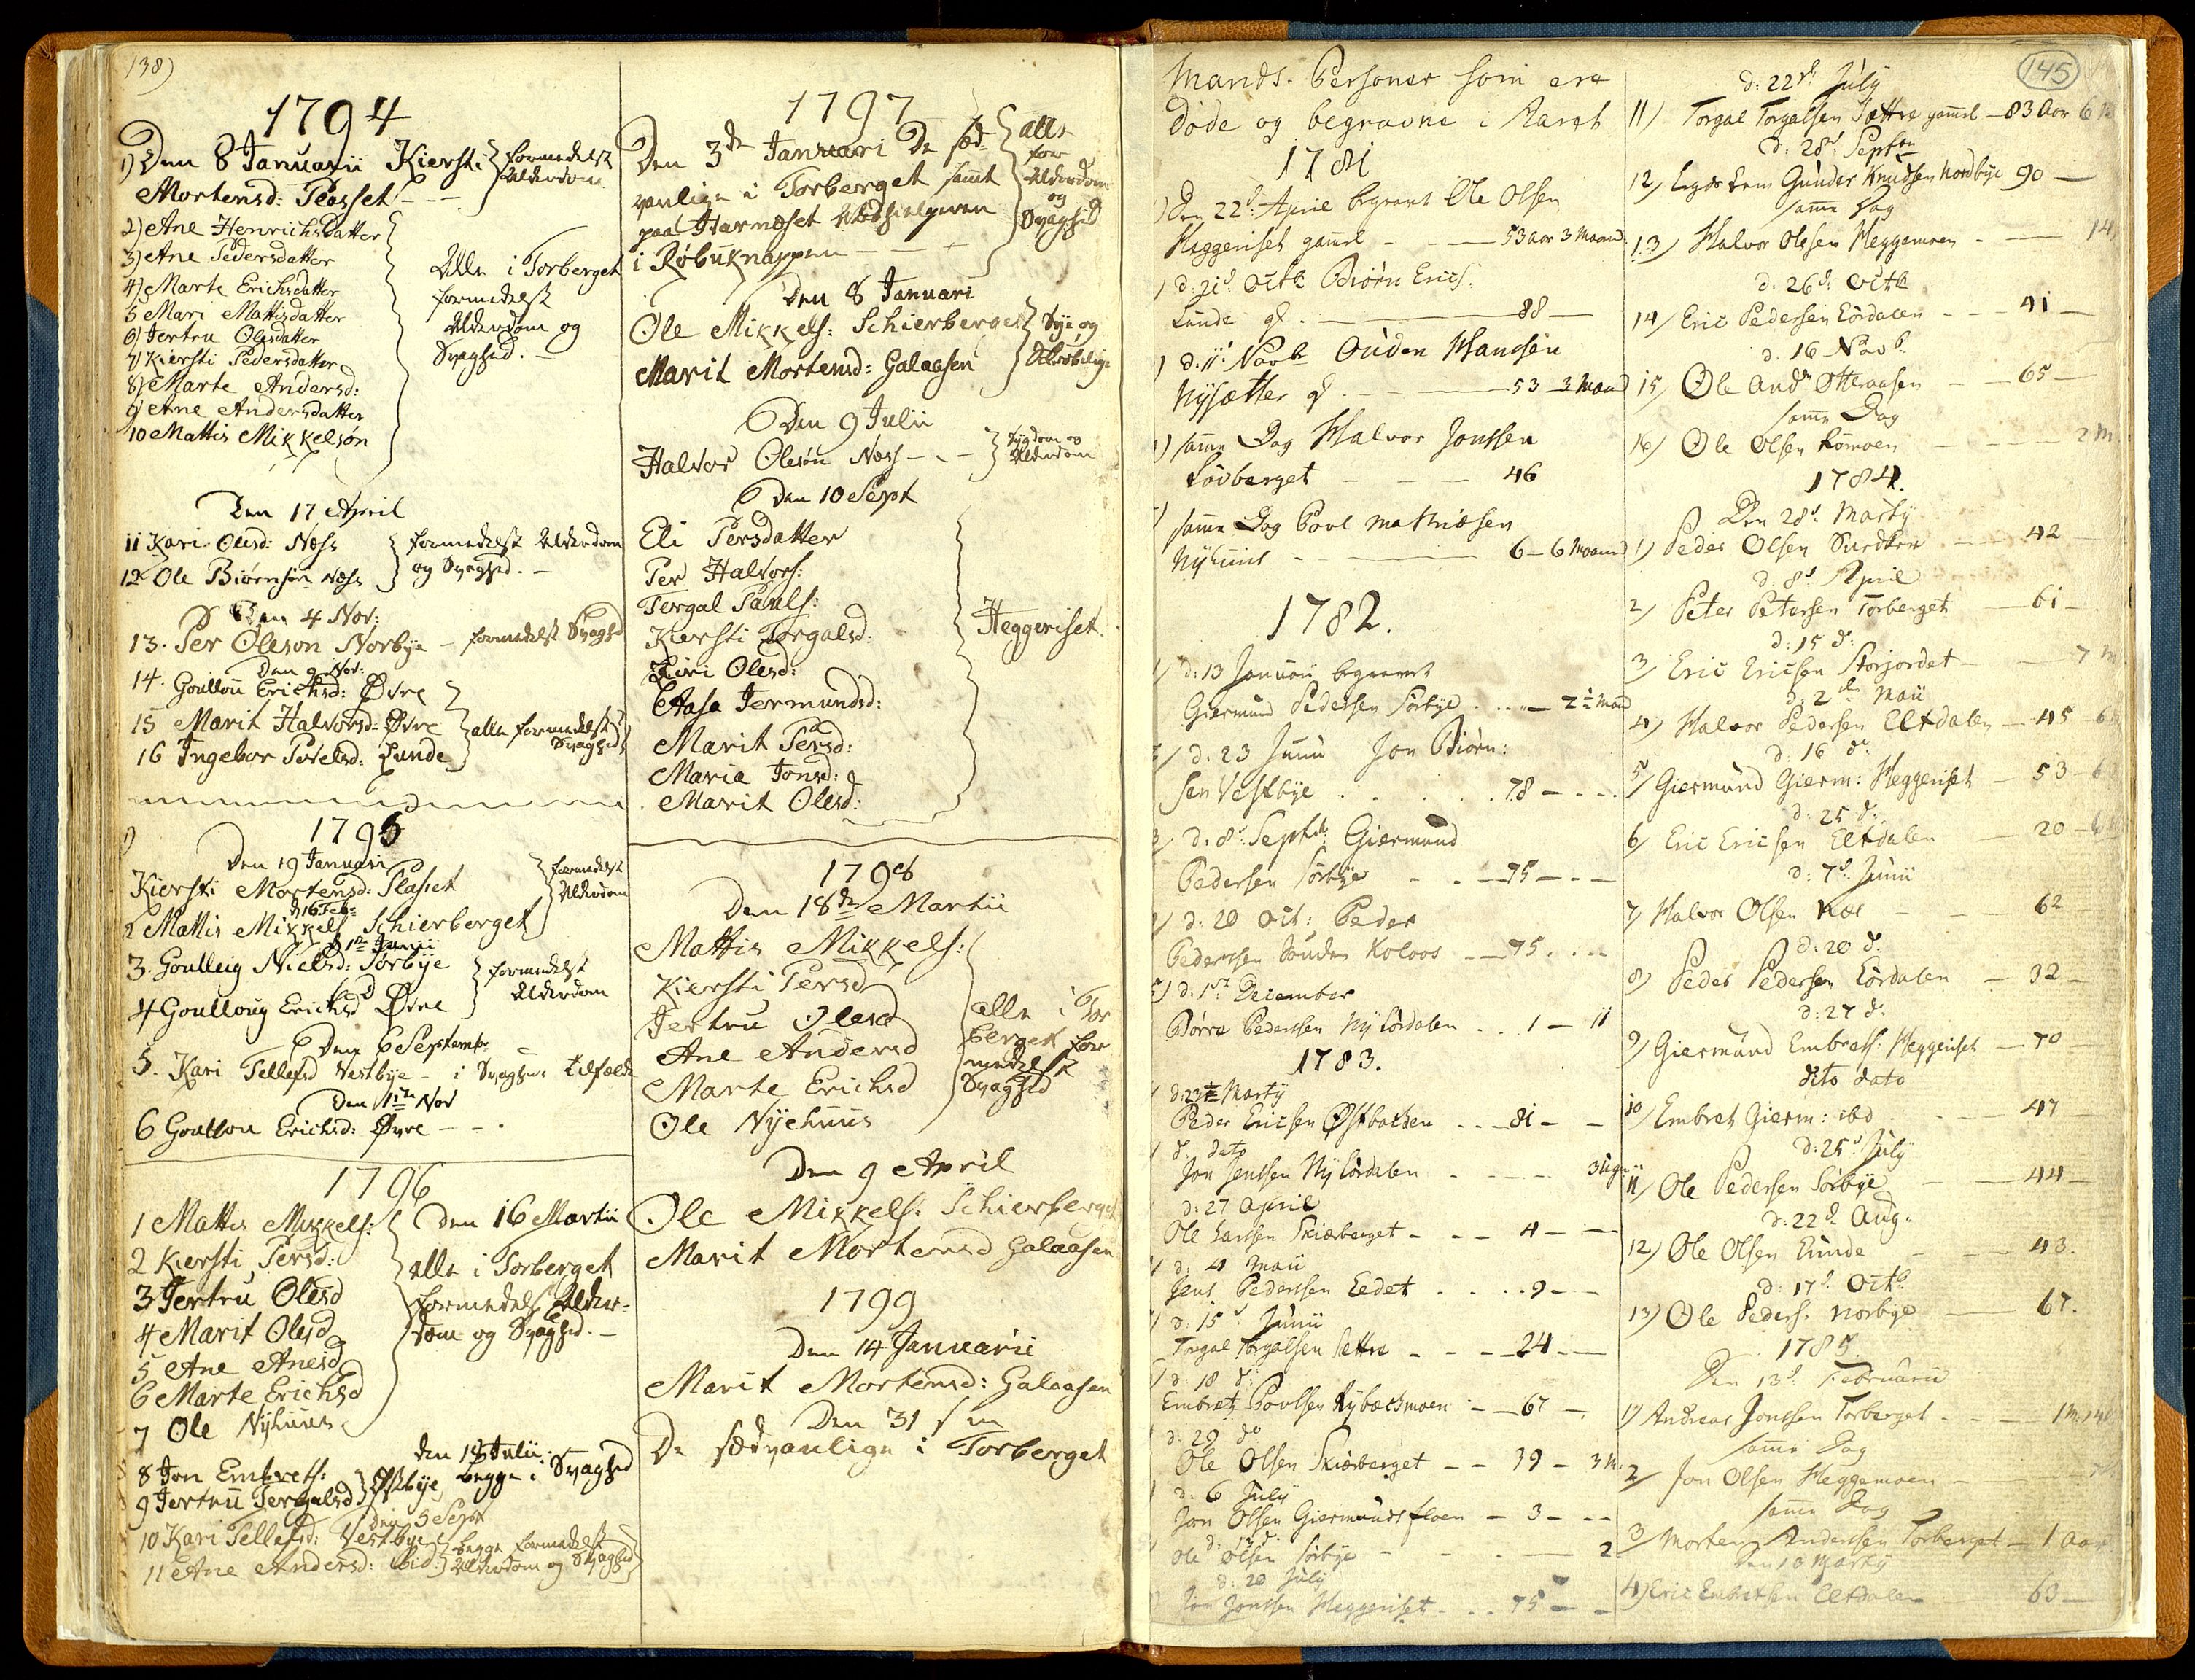 138)
1794
1) Den 8 Januarii Kiersti } formedelst
Mortensd: Plasset - - - Alderdom
2) Ane Henrichsdatter
3) Ane Pedersdatter
4) Marte Erichsdatter
5 Mari Mattisdatter
6) Jertru Olesdatter
7) Kiersti Pedersdatter
8) Marte Andersd:
9) Ane Andersdatter
10 Mattis Mikkelsøn
Alle i Torberget
formedelst
Alderdom og
Svaghed. -
Den 17 April
11 Kari Olesd: Næss } formedelst Alderdom
12 Ole Biørnsøn Næss } og Svaghed. -
Den 4 Nov:
13. Per Oleson Norbye - formedelst Svaghed
Den 9 Nov:
14. Goullou Erichsd: Øvre
15 Marit Halvorsd: Øvre } alle formedelst
16 Ingebor Povelsd: Lunde } Svaghed
1795
1) Den 19 Januari
Kiersti Mortensd: Plasset } formedelst
d 16 Feb:
2 Mattis Mikkels Schierberget } Alderdom
d 1ste Junii
3. Goulleig Nielsd: Sørbye } formedelst
4 Goulloug Erichsd Øvre } Alderdom
Den 6 Septemb:
5. Kari Tellefsd Vestbye - i Svagheds tilfælde
Den 1ste Nov
6 Goullou Erichsd: Øvre - - .
1796
1 Mattis Mikkels: { Den 16 Martii
2 Kiersti Persd:
3 Jertru Olesd
4 Marit Olesd
5 Ane Anesd
6 Marte Erichsd
7 Ole Nyhuus
alle i Torberget
formedelst Alder-
dom og Svaghed. -
den 18 Julii
8 Jon Embrets:
9 Jertru Torgalsd } Østbye begge i Svaghed
den 5 Sept
10 Kari Tellefsd: Vestbye } begge formedelst
11 Ane Andersd: ibid: } Alderdom og Svaghed
1797
Den 3de Januari De sæd-
vanlige i Torberget samt
paa Harnæset
i Røbuknappen - - +
alle
for
Alderdom
og
Svaghed
Den 8 Januari
Ole Mikkels: Schierberget } Syg og
Marit Mortensd: Galaasen } Skrøbelige
Den 9 Julii
Halvor Olesøn Næss - - - } Sygdom og Alderdom
Den 10 Sept
Eli Persdatter
Per Halvors:
Torgal Pauls:
Kiersti Torgalsd:
Kiri Olesd:
Aasa Jermundsd:
Marit Persd:
Maria Jonsd:
Marit Olesd:
Heggeriset.
1798
Den 18de Martii
Mattis Mikkels:
Kiersti Persd
Jertru Olesd
Ane Andersd
Marte Erichsd
Ole Nyehuus
alle i Tor
berget for
medelst
Svaghed
Den 9 April
Ole Mikkels: Schierberget
Marit Mortensd Galaasen
1799
Den 14 Januarii
Marit Mortensd: Galaasen
Den 31 s m
De sædvanlige i Torberget
Mands-Personer som ere
døde og begravne i Aaret
1781
1) Den 22d: April begravet Ole Olsen
Heggeriset gaml - - - 53 aar 3 Maand.
) d: 21d. Octb Biørn Erics:
Lunde gl. - 88 -
) d. 11t Novb Ouden Hansen
Nysætter gl - 53 - 3 Maand
) samme Dag Halvor Jonssen
Løvberget - - - 46
) samme Dag Povl Mathiæsen
Nyhuus - 6 - 6 Maand
1782.
1) d: 13 Januari begravet
Giermund Pedersen Sørbye . . . - 2½ Maa
2) d. 23 Junii Jon Biørn:
sen Vestbye . . . . . 78 - - -
3) d. 8d. Septbr. Giermund
Pedersen Sørbye - . - 75 - - -
4) d: 20 Oct: Peder
Pederssen Sonden Koloos - 75 . . . -
5) d: 1st December
Børre Pederssen Ny Lördalen . . 1 - 11
1783.
) d. 23de Marty
Peder Ericsen Østbacken . . . 81 - -
) d. dato
Jon Jenssen Ny Lördalen - . - - - 3 Uger
d: 27 April
Ole Larssen Skiærberget - - - 4 - -
) d: 4 Maii
Jens Pederssen Eedet . . . . 9 - -
) d: 15d Junii
Torgal Torgalsen Sættre - - - 24 - -
) d: 18 d:
Embret Povlsen Nybacksmoen - - 67 -
) d: 29 do
Ole Olsen Skiærberget - - 39 - 3 M.
) d: 6 July
Jon Olsen Giermundsfloen - 3 - - -
d: 13 d:
Ole Olsen Sørbye - - . - 2
d: 20 July
Jon Jonssen Heggeriset - . . 75 - -
145
d: 22d July
11) Torgal Torgalsen Sættre gaml - 83 Aar 6 M
d: 28d Septbr
12) Gunder Knudsen Nordbye 90 -
samme Dag
13) Halvor Olesen Heggemoen - - 14
d: 26d: Octb
14) Eric Pedersen Lördalen - - - 41 -
d. 16 Novb.
15) Ole Andr Otteraasen - - 65 -
samme Dag
16) Ole Olsen Römoen - - - - 2 M.
1784.
Den 28d. Marty
1) Peder Olsen - 42 -
d. 8d April
2) Peter Petersen Torberget - 61 -
d: 15 d:
3) Eric Ericsen Storjordet - - 7 M
d: 2de Maii
4) Halvor Pedersen Eltdalen - 45 - 6
d: 16 d:
5) Giermund Gierm: Heggeriset - 53 - 6
d: 25 d:
6) Eric Ericsen Eltdalen - 20 - 6
d: 7d Junii
7) Halvor Olsen Næs - - 62
d: 20 d:
8) Peder Pedersen Lördalen - 32 -
d: 27 d.
9) Giermund Embrets: Heggeriset - 70 -
dito dato
10) Embret Gierm: ibd - - 47 -
d: 25d July
11) Ole Pedersen Sørbye - - 44 -
d: 22d Aug.
12) Ole Olsen Lunde - - - 43.
d: 17d. Octb
13) Ole Peders. Norbye - 67.
1785.
Den 13d. Februarii
1) Andreas Jonssen Torberget - - - 1 M. 14 d
samme Dag
2) Jon Olsen Heggemoen -
samme Dag
3) Morten Anderssen Torberget - 1 Aar
Den 10 Marty
4) Eric Embretsen Eltdalen - 63 -